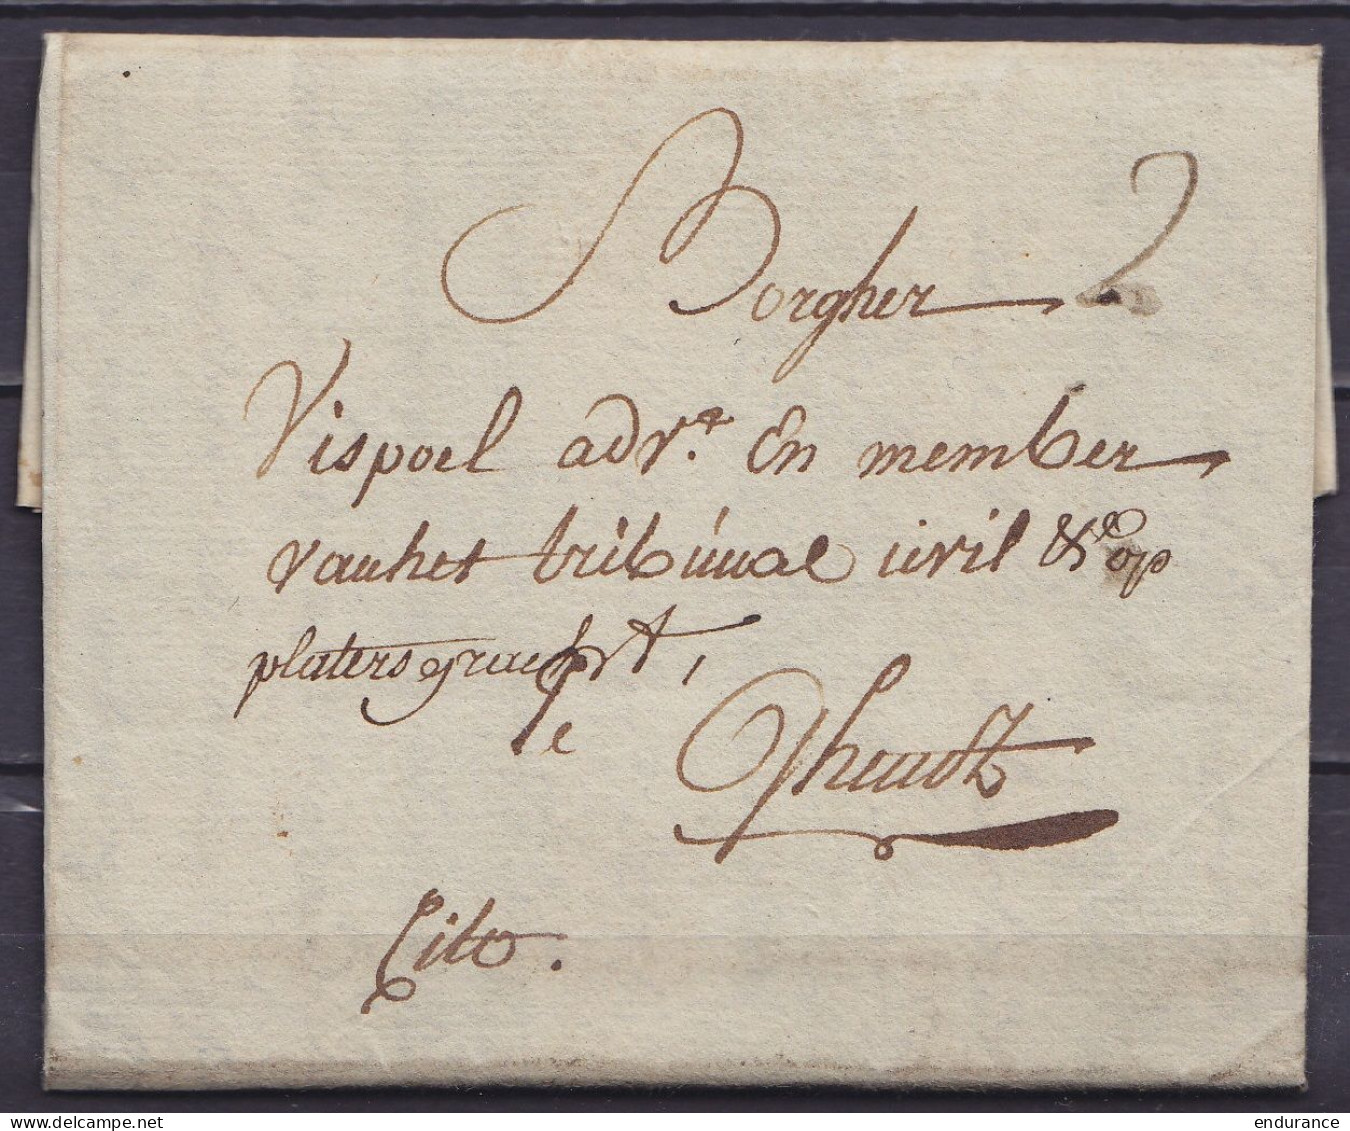 Borgher 2
Vispoel adv.t En member
van het tribúnael civil &c op
platersgracht,
te
Ghendt
Cito.
endurance